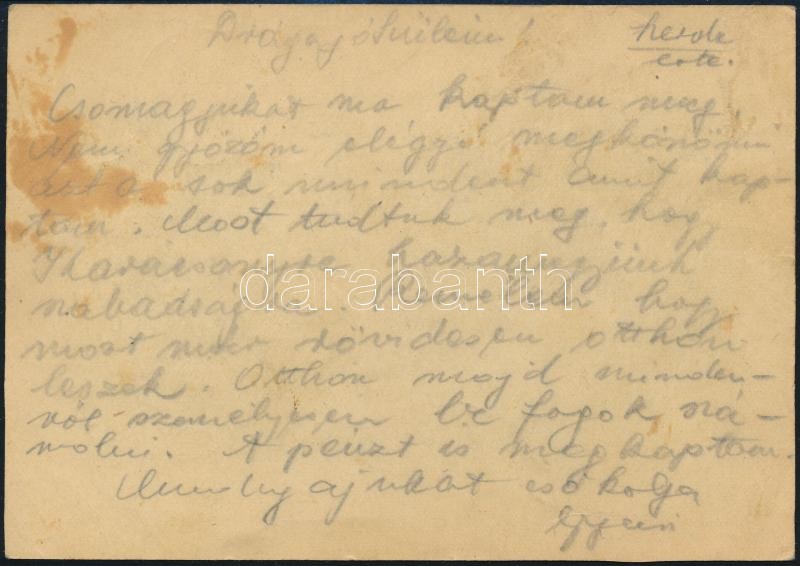 Drága jó Szüleim!
este.
Csomagjukat ma kaptam meg.
Nem győzöm eléggé megköszönni
azt a sok mindent amit kap-
tam. Most tudtuk meg, hogy
Karácsonyra hazamegyünk
szabadságra. Remélem hogy
most már rövidesen otthon
leszek. Otthon majd minden-
ről személyesen be fogok szá-
molni. A pénzt is megkaptam.
csókolja
darabanth